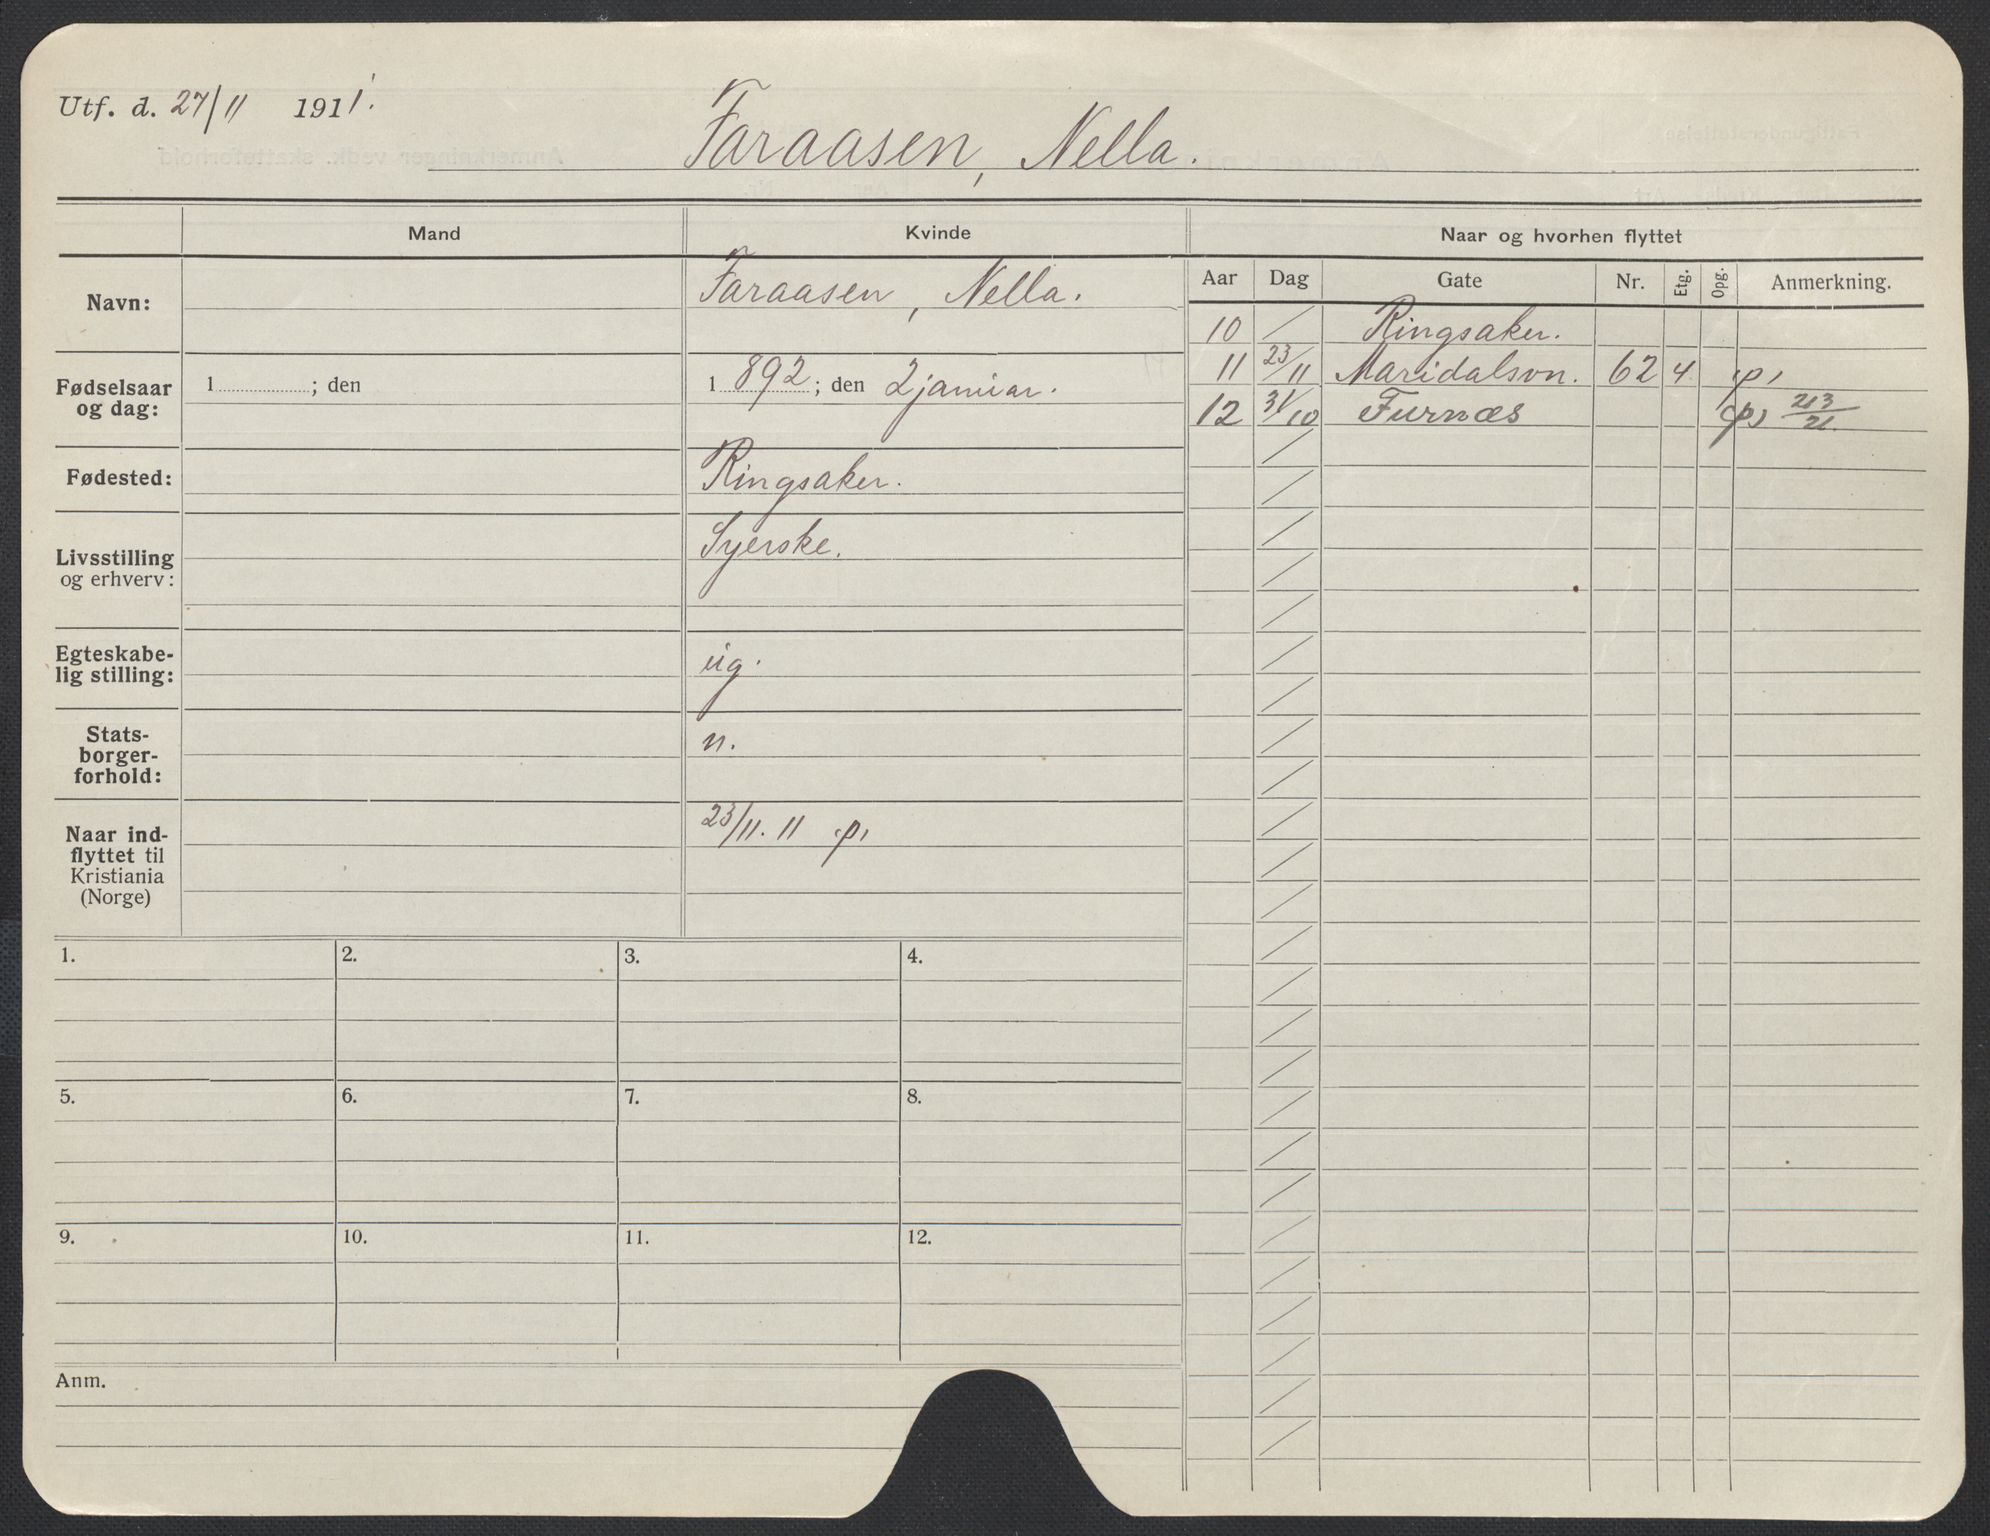 Utf. d. 27/11 1911.
Faraasen, Nella.
Mand
Kvinde
Naar og hvorhen flyttet
Navn:
Faraasen, Nella.
Fødselsaar og dag:
1 ; den
1892; den 2 januar.
Fødested:
Ringsaker.
Livsstilling og erhverv:
Syerske.
Egteskabe-
lig stilling:
ug.
Stats-
borger-
forhold:
n.
Naar ind-
flyttet til
Kristiania
(Norge)
23/11. 11 p,
Aar Dag Gate Nr. Etg. Opg. Anmerkning.
10 / Ringsaker.
11 23/11 Maridalsvn. 62 4 p,
12 31/10 Furnæs p, 213/21
1. 2. 3. 4.
5. 6. 7. 8.
9. 10. 11. 12.
Anm.